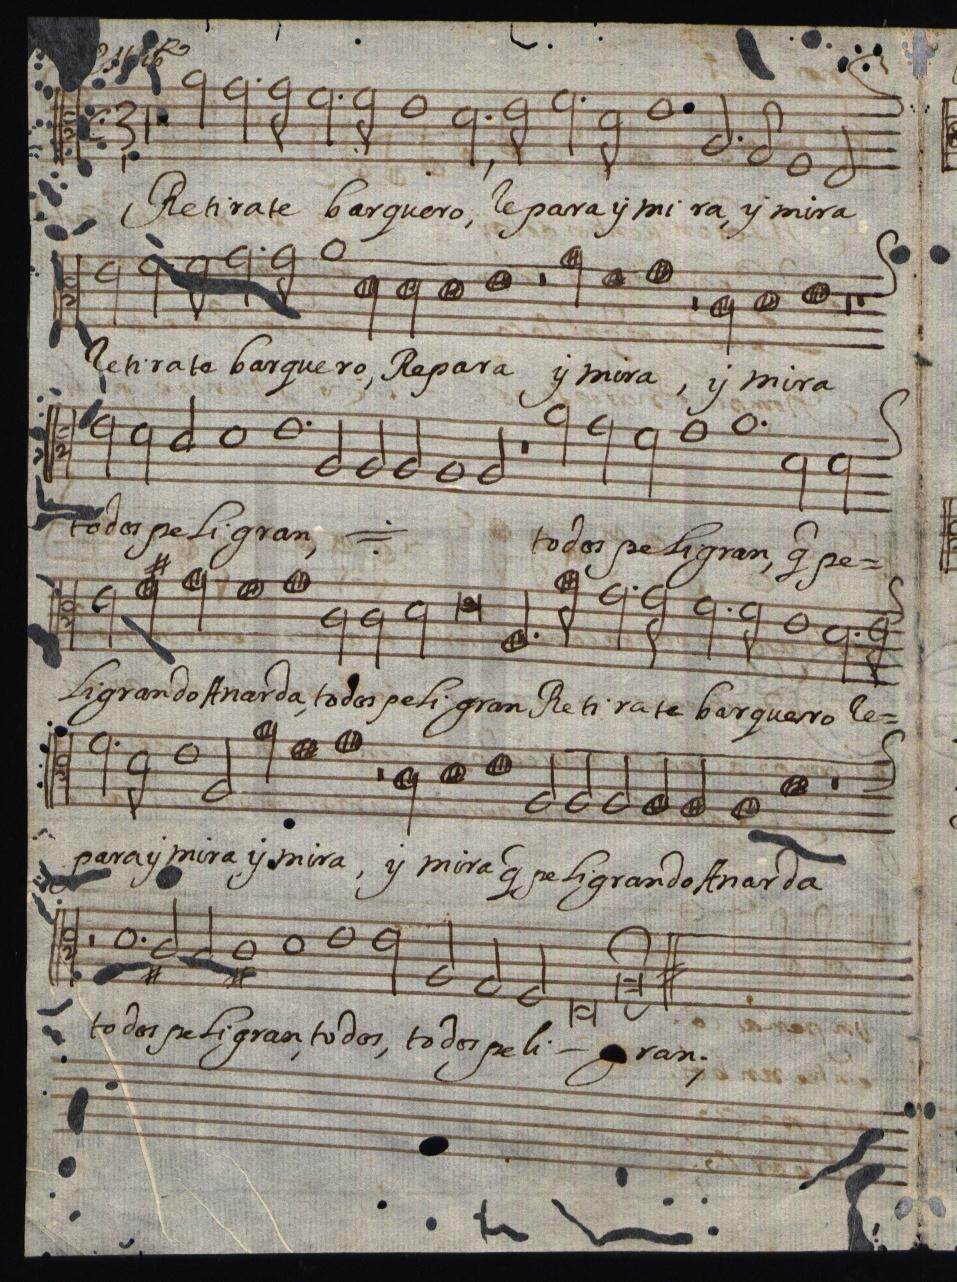 Retirate barquero, repara ÿ mi ra, ÿ mira
retirate barquero, Repara ÿ mira, ÿ mira
todos peligran, todos peligran, q̃ pe=
ligrando Anarda, todos peligran Retirate barquero re=
para ÿ mira ÿ mira, ÿ mira q̃ peligrando Anarda
todos peligran, todos, todos peli-gran.